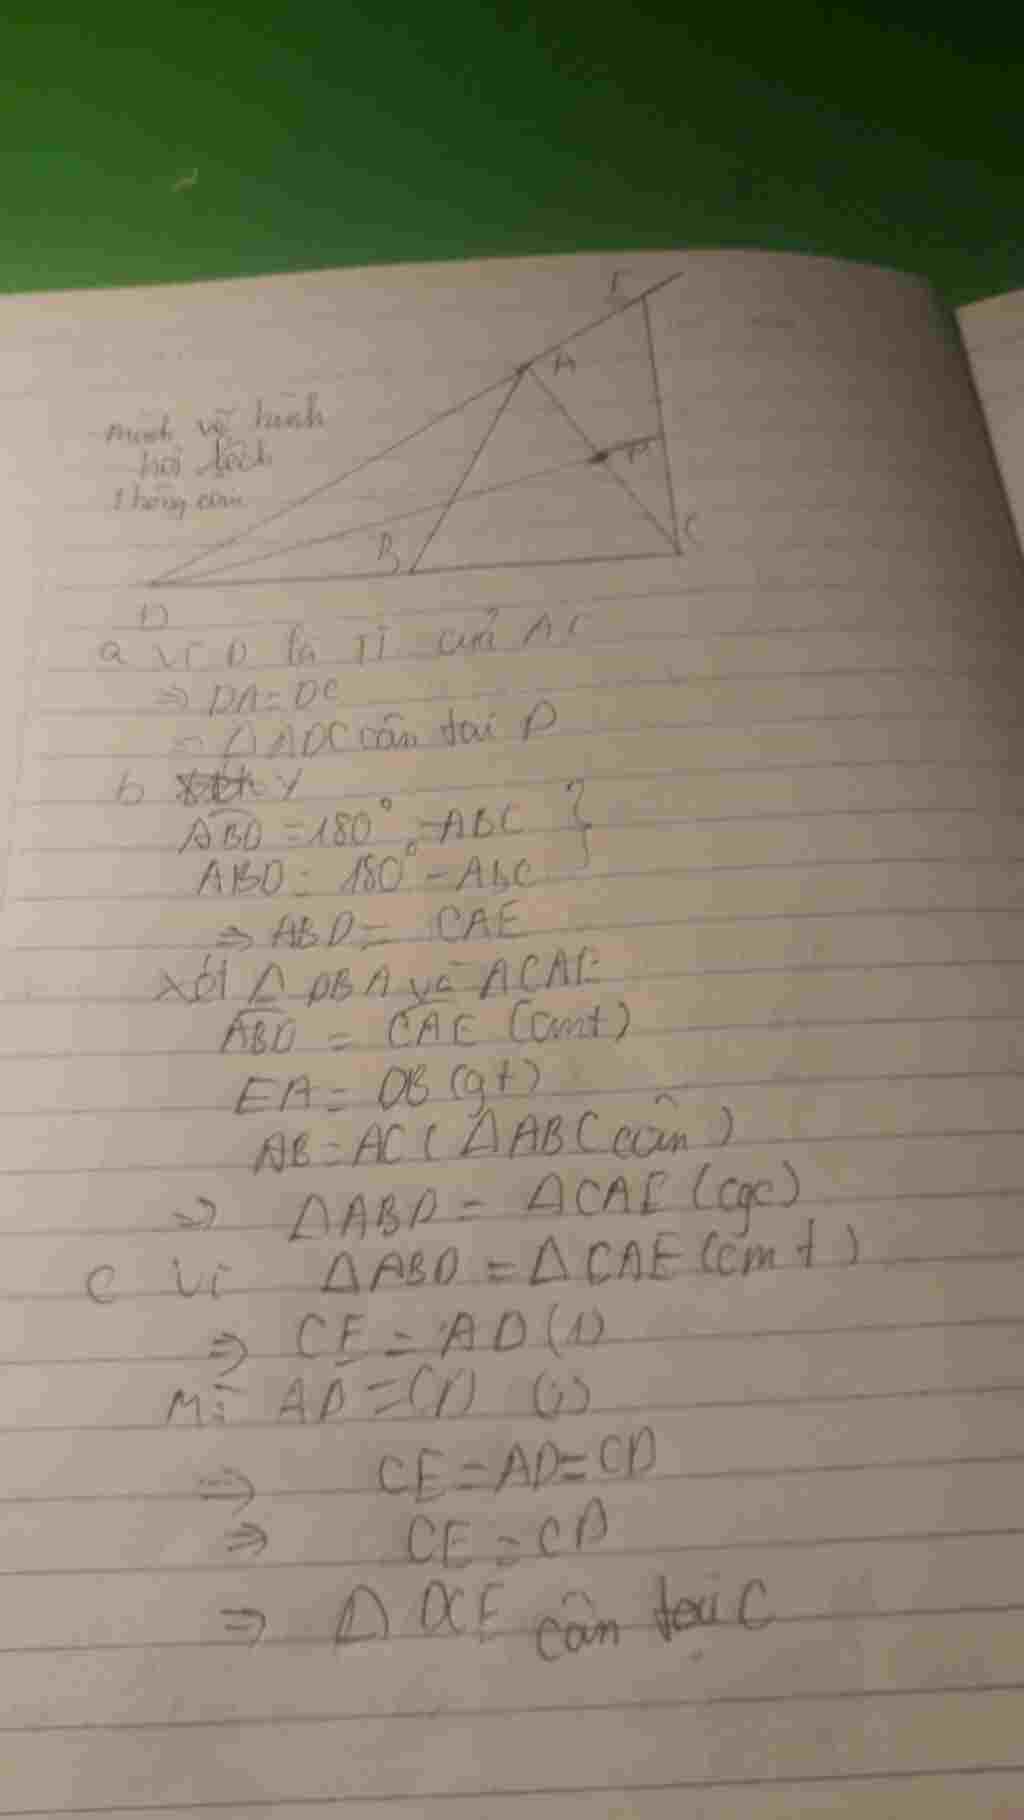 E
A
mình vẽ hình
hơi lệch
thông cảm
B
C
D
a Vì D là TĐ của AC
⇒ DA = DC
⇒ Δ ADC cân tại D
b
ABD = 180° - ABC }
ABD = 180° - ABC
⇒ ABD = CAE
Xét Δ DBA và ACAE
ABD = CAE (cmt)
EA = DB (gt)
AB = AC ( Δ ABC cân )
⇒ Δ ABD = Δ CAE (cgc)
c Vì Δ ABD = Δ CAE (cmt)
⇒ CE = AD (1)
Mà AD = CD
⇒ CE = AD = CD
⇒ CE = CD
⇒ Δ DCE cân tại C